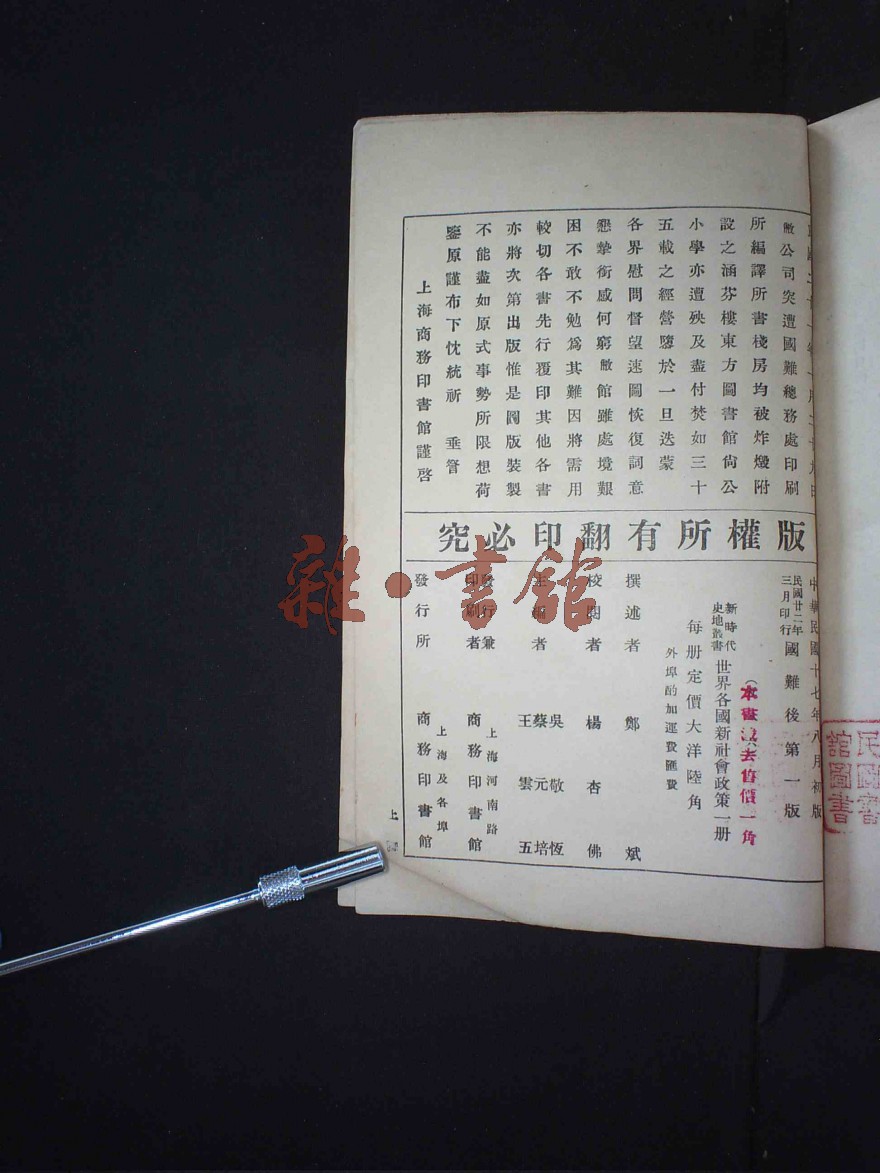 民國二十一年一月二十九日
敝公司突遭國難總務處印刷
所編譯所書棧房均被炸燬附
設之涵芬樓東方圖書館尚公
小學亦遭殃及盡付焚如三十
五載之經營隳於一旦迭蒙
各界慰問督望速圖恢復詞意
懇摯銜感何窮敝館雖處境艱
困不敢不勉爲其難因將需用
較切各書先行覆印其他各書
亦將次第出版惟是圖版裝製
不能盡如原式事勢所限想荷
鑒原謹布下忱統祈 垂詧
上海商務印書館謹啓
版權所有翻印必究
中華民國十七年八月初版
民國廿二年三月印行 國難後第一版
(本書減去售價一角
新時代史地叢書 世界各國新社會政策一册
每册定價大洋陸角
外埠酌加運費匯費
撰述者 鄭斌
校閱者 楊杏佛
主編者 吳敬恆 蔡元培 王雲五
發行兼印刷者 上海河南路 商務印書館
發行所 上海及各埠 商務印書館
上
民國書
館圖書
雜·書館